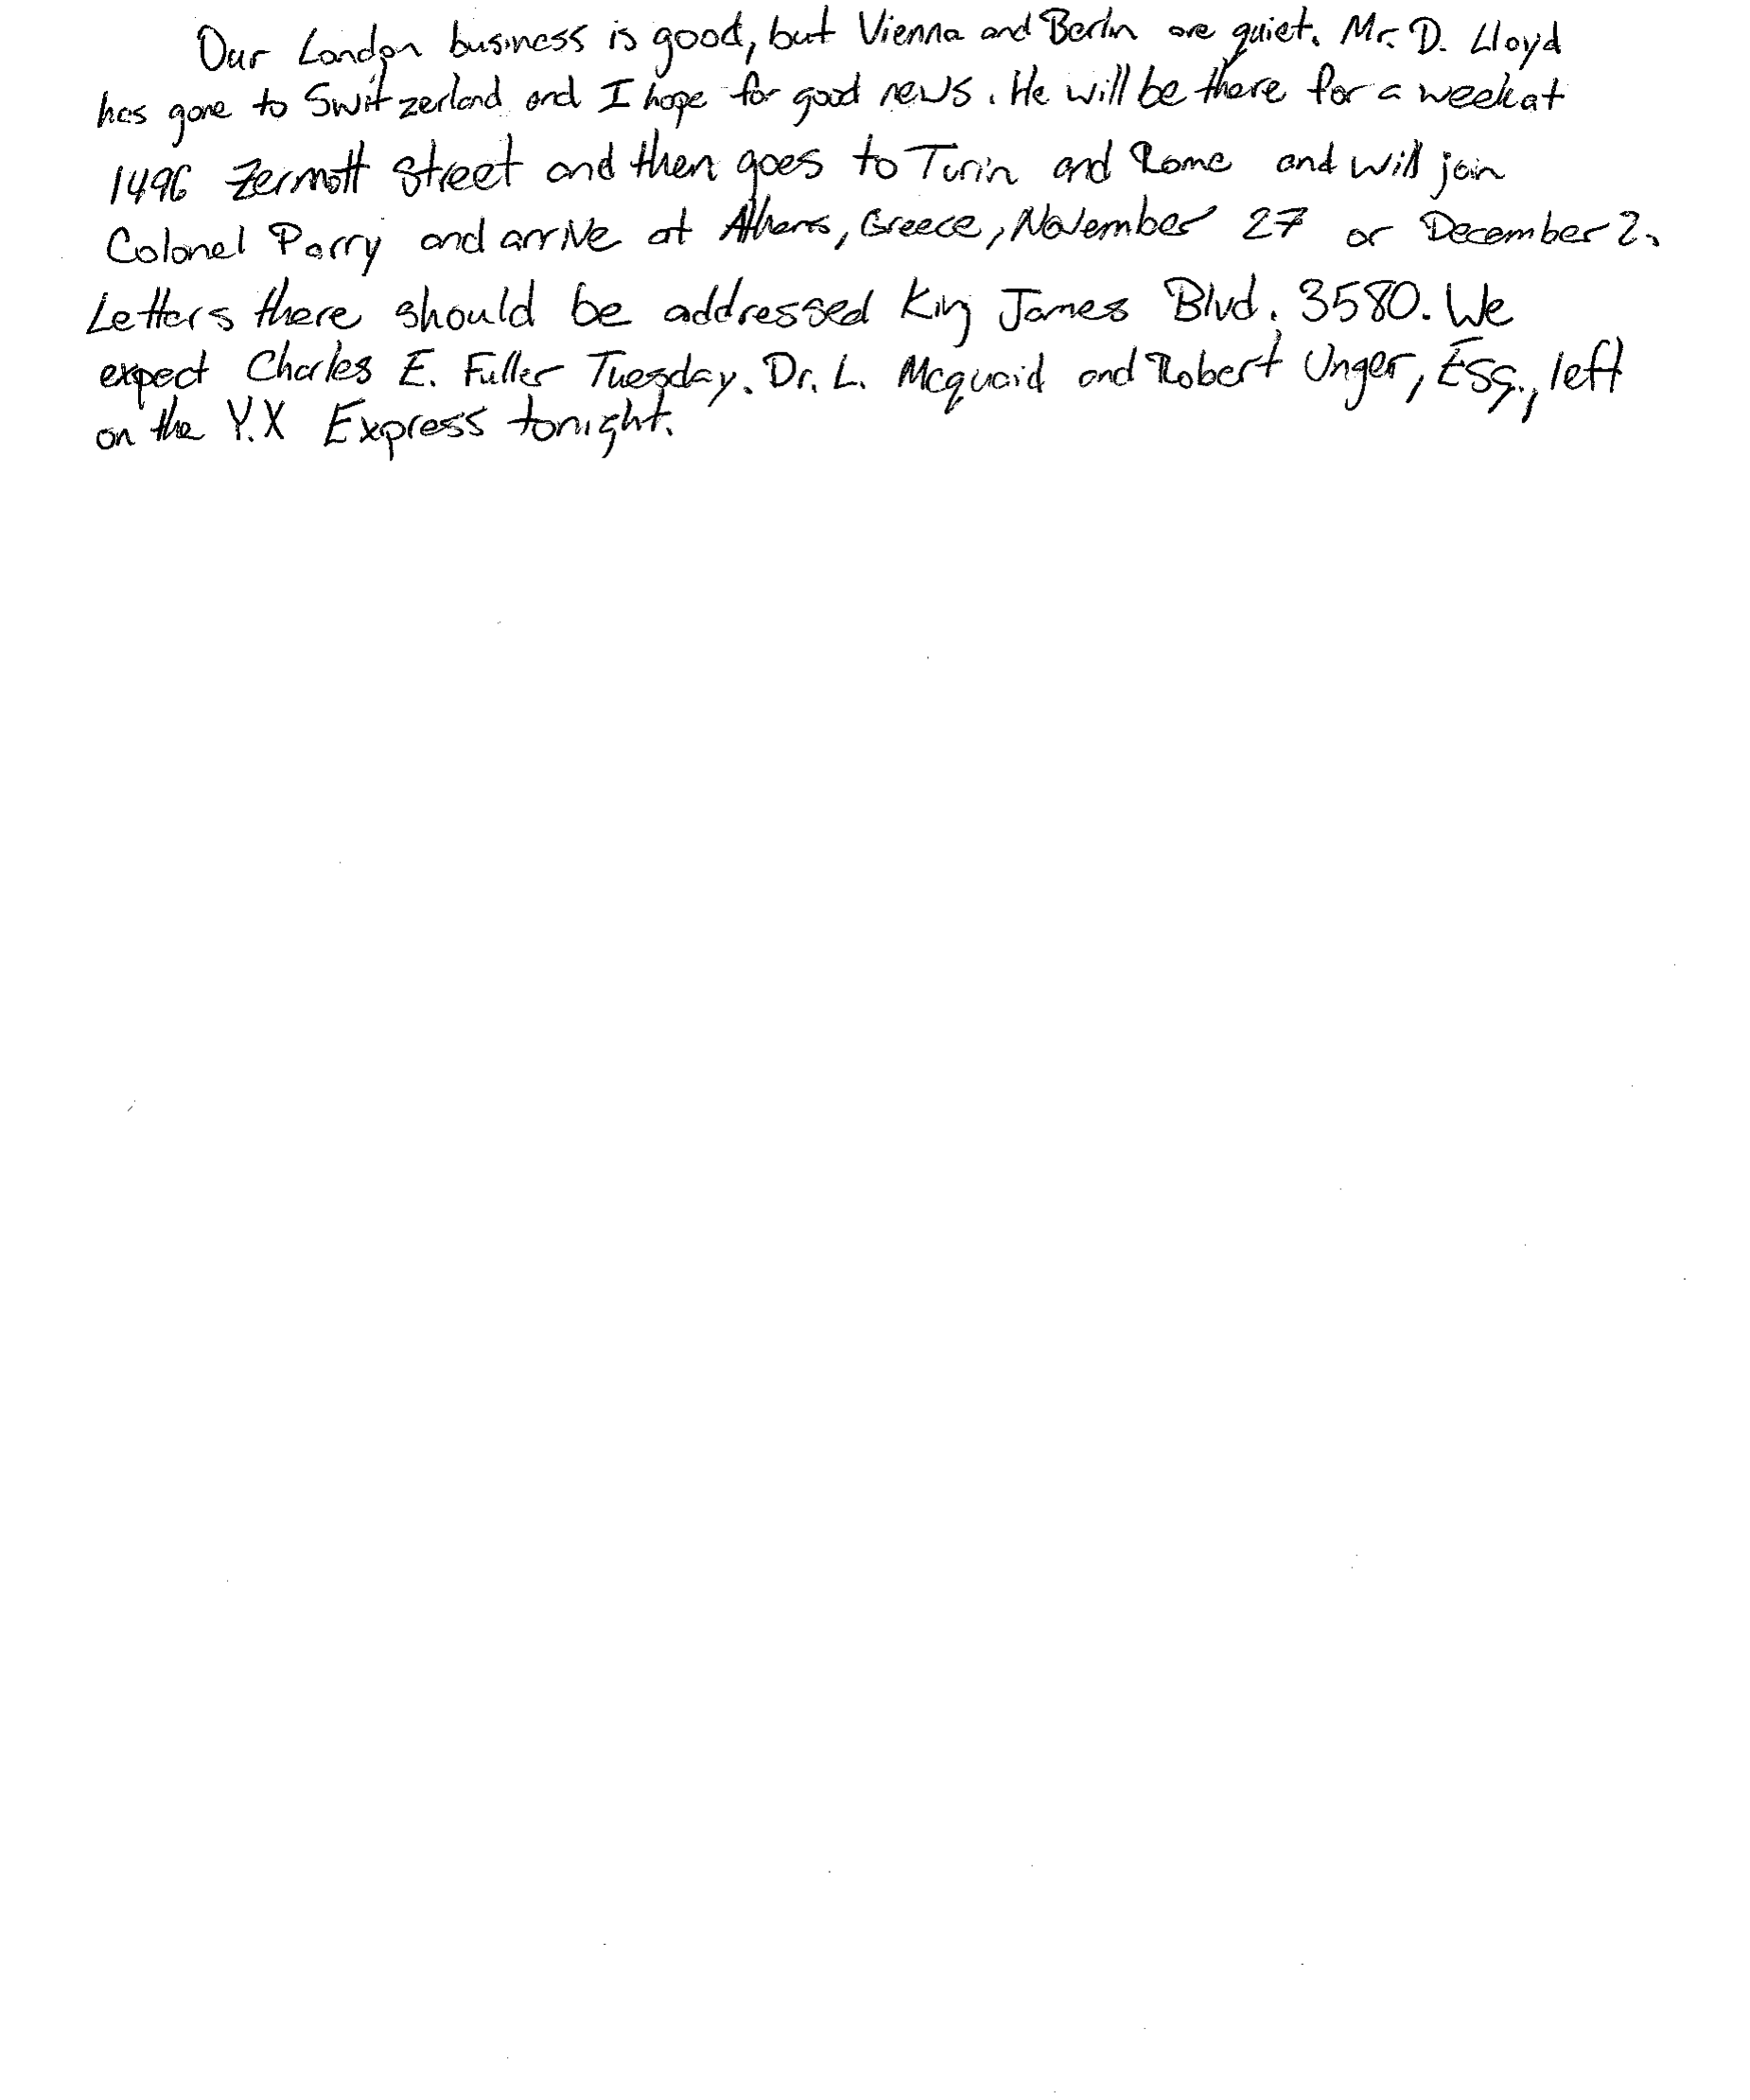 Our London business is good, but Vienna and Berlin are quiet. Mr. D. Lloyd
has gone to Switzerland and I hope for good news. He will be there for a week at
1496 Zermott Street and then goes to Turin and Rome and will join
Colonel Parry and arrive at Athens, Greece, November 27 or December 2.
Letters there should be addressed King James Blvd. 3580. We
expect Charles E. Fuller Tuesday. Dr. L. Mcquaid and Robert Unger, Esq., left
on the Y.X Express tonight.